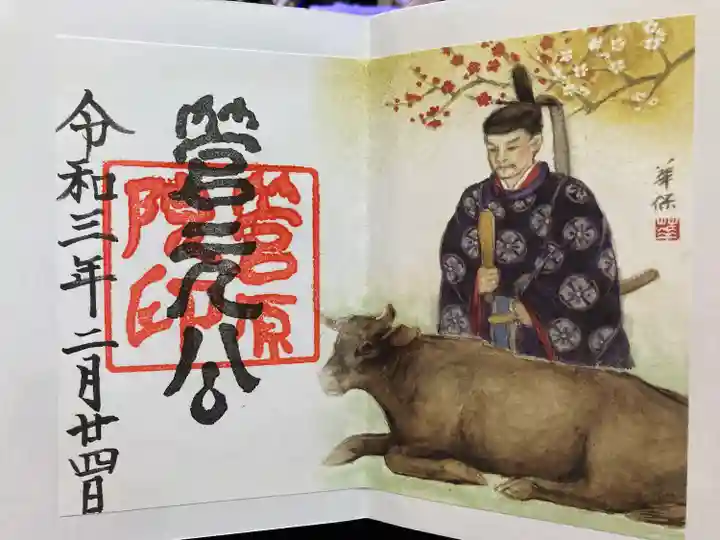 華保
華
菅三九公
菅原
院印
令和三年二月廿四日